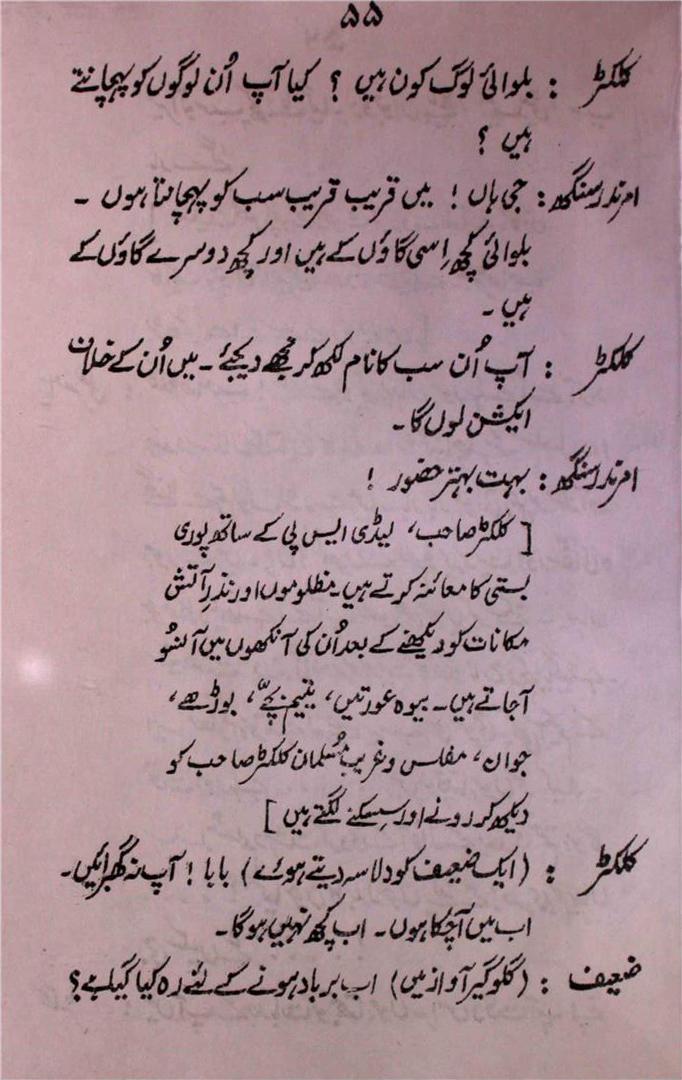 ۵۵
کلکٹر : بلوائی لوگ کون ہیں ؟ کیا آپ اُن لوگوں کو پہچانتے
ہیں ؟
امرندر سنگھ : جی ہاں ! میں قریب قریب سب کو پہچانتا ہوں ۔
بلوائی کچھ اِسی گاؤں کے ہیں اور کچھ دوسرے گاؤں کے
ہیں ۔
کلکٹر : آپ اُن سب کا نام لکھ کر مجھے دیجئے ۔ میں اُن کے خلاف
ایکشن لوں گا ۔
امرندر سنگھ : بہت بہتر حضور !
[ کلکٹر صاحب، لیڈی ایس پی کے ساتھ پوری
بستی کا معائنہ کرتے ہیں۔ مظلوموں اور نذرِ آتش
مکانات کو دیکھنے کے بعد اُن کی آنکھوں میں آنسُو
آجاتے ہیں ۔ بیوہ عورتیں، یتیم بچّے، بوڑھے،
جوان، مفلس و غریب مُسلمان کلکٹر صاحب کو
دیکھ کر رونے اور سِسکنے لگتے ہیں ]
کلکٹر : (ایک ضعیف کو دلاسہ دیتے ہوئے) بابا ! آپ نہ گھبرائیں۔
اب میں آچکا ہوں ۔ اب کچھ نہیں ہوگا ۔
ضعیف : (گلوگیر آواز میں) اب برباد ہونے کے لئے رہ کیا گیا ہے؟